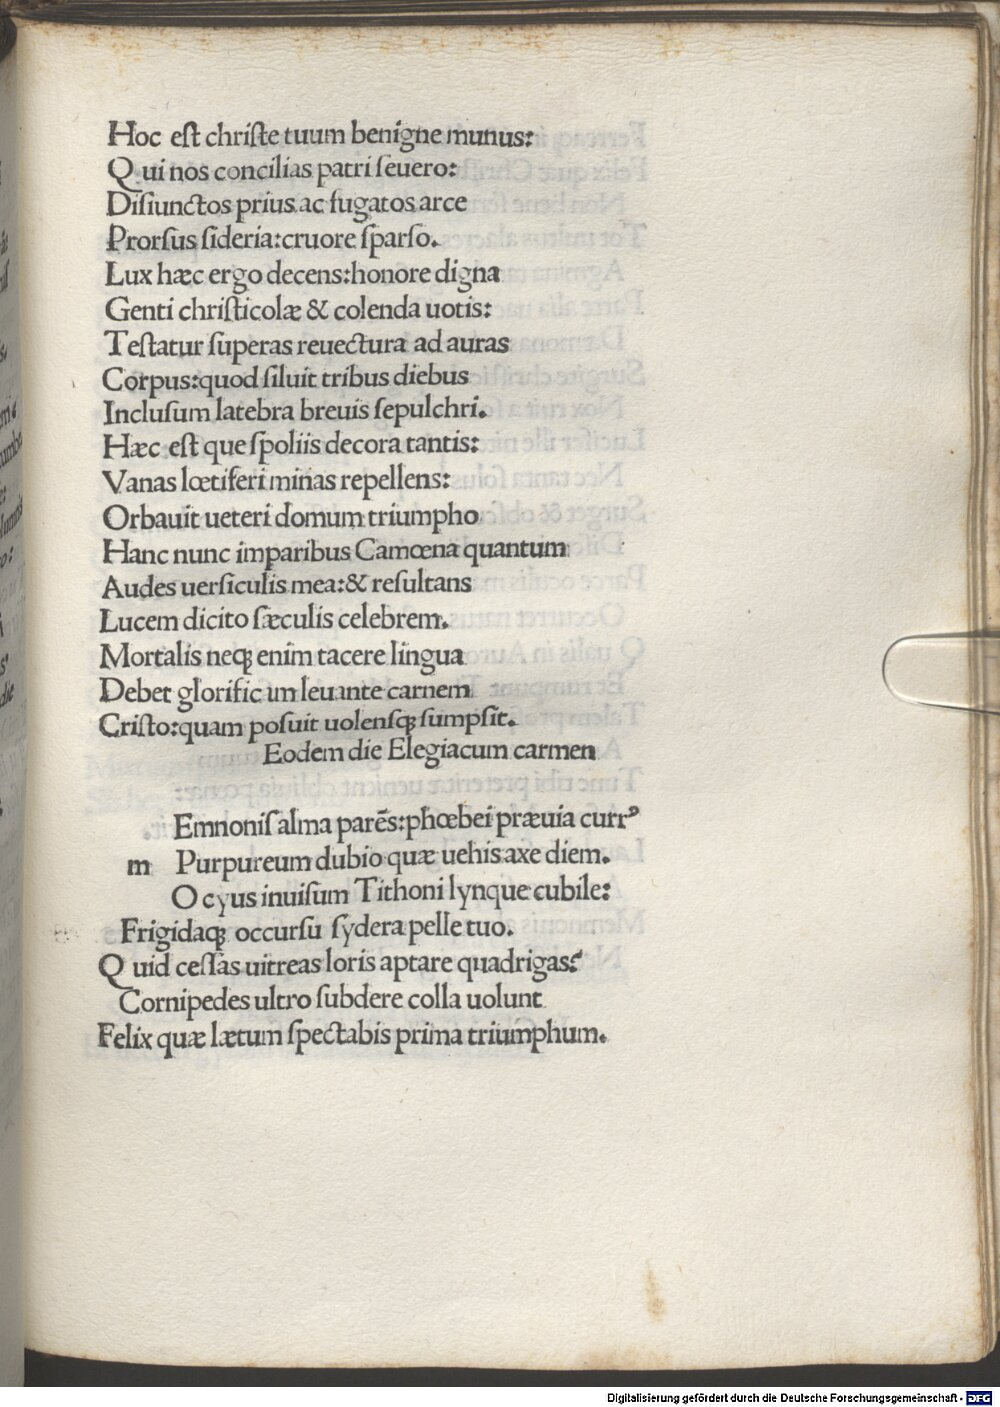 Hoc eſt chriſte tuum benigne munus:
Q ui nos concilias patri ſeuero:
Diſiunctos prius ac fugatos arce
Prorſus ſideria:cruore ſparſo.
Lux hæc ergo decens:honore digna
Genti chriſticolæ & colenda uotis:
Teſtatur ſuperas reuectura ad auras
Corpus:quod ſiluit tribus diebus
Incluſum latebra breuis ſepulchri.
Hæc eſt que ſpoliis decora tantis:
Vanas lœtiferi minas repellens:
Orbauit ueteri domum triumpho
Hanc nunc imparibus Camœna quantum
Audes uerſiculis mea:& reſultans
Lucem dicito ſæculis celebrem.
Mortalis neqꝫ enim tacere lingua
Debet glorific um leuante carnem
Criſto:quam poſuit uolenſqꝫ ſumpſit.
Eodem die Elegiacum carmen
Emnoniſ alma parēs:phœbei præuia currꝰ
m Purpureum dubio quæ uehis axe diem.
O cyus inuiſum Tithoni lynque cubile:
Frigidaqꝫ occurſu ſydera pelle tuo.
Q uid ceſſas uitreas loris aptare quadrigas?
Cornipedes ultro ſubdere colla uolunt
Felix quæ lætum ſpectabis prima triumphum.
Digitalisierung gefördert durch die Deutsche Forschungsgemeinschaft - DFG